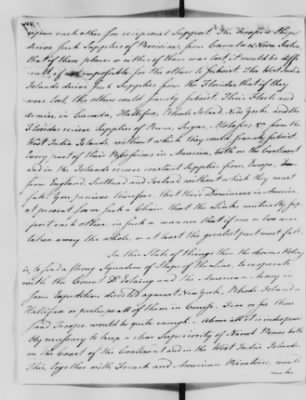 upon each other for reciprocal Support. The Troops & Ships
derive such Supplies of Provisions, from Canada & Nova Scotia
that if these places or either of them was lost, it would be diffi-
cult, if not impossible for the other to subsist. The West India
Islands derive such Supplies from the Floridas, that if they
were lost, the others could scarcely subsist. Their Fleets and
Armies in Canada, Hallifax, Rhode Island, New York and the
Floridas receive Supplies of Rum, Sugar, Molasses, & from the
West India Islands, without which they could scarcely subsist.
Every part of their Possessions in America, both on the Continent
and in the Islands receives constant Supplies from Europe,
from England, Scotland and Ireland, without which they must
fall. You perceive therefore, that their Dominions in America
at present form such a Chain, that the Links mutually sup-
port each other, in such a manner that if one or two were
taken away the whole, or at least the greatest part must fall.
In this State of things then the obvious Policy
is, to send a strong Squadron of Ships of the Line, to cooperate
with the Count D'Estaing and the Americans, in
some Expedition directed against New York, Rhode Island or
Hallifax or perhaps all of them in Course. Four or five thou-
sand Troops would be quite enough. above all it is indispensi-
bly necessary to keep a clear Superiority of Naval Power, both
on the Coast of the Continent and in the West India Islands.
This, together with French and American Privateers, would
make